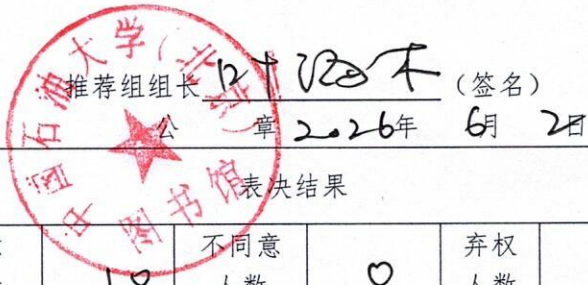 中国石油大学(北京)
图书馆
推荐组组长 叶 木 (签名)
公 章 2026年 6月 2日
表决结果
不同意 弃权
人数 0 人数